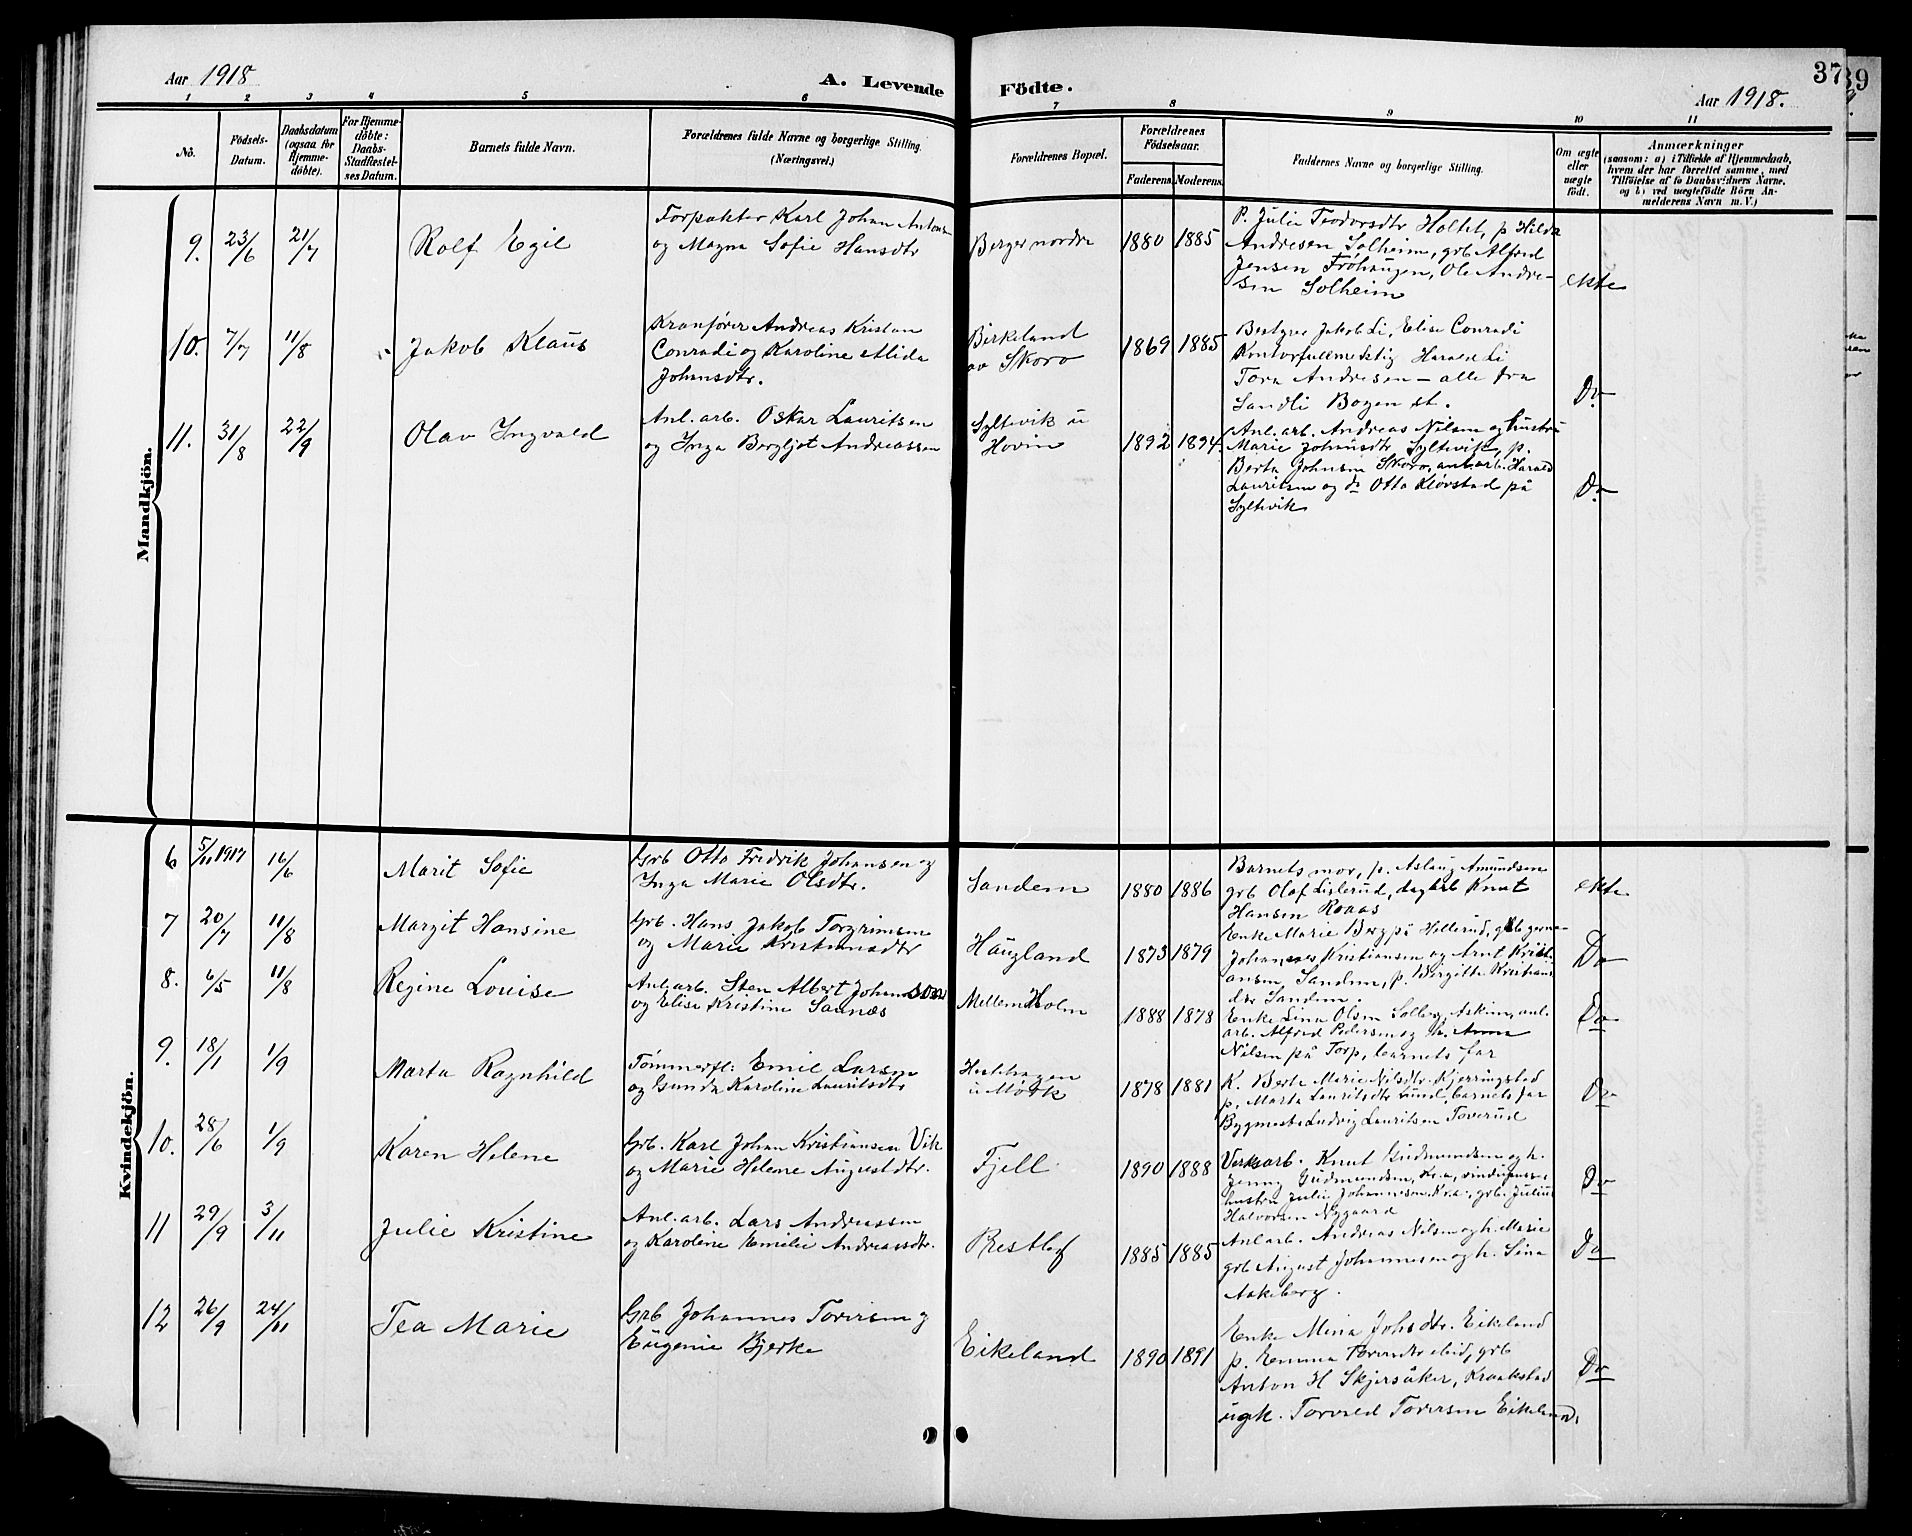 Aar 1918
A. Levende Födte.
37
39
Aar 1918.
1 2 3 4 5 6 7 8 9 10 11
No.
Födsels-
Datum.
Daabsdatum
(ogsaa for
Hjemme-
döbte).
For Hjemme-
döbte:
Daabs-
Stadfæstel-
ses Datum.
Barnets fulde Navn.
Forældrenes fulde Navne og borgerlige Stilling.
(Næringsvei.)
Forældrenes Bopæl.
Forældrenes
Födselsaar.
Faderens. Moderens.
Faddernes Navne og borgerlige Stilling.
Om ægte
eller
uægte
födt.
Anmærkninger
(saasom: a) i Tilfælde af Hjemmedaab,
hvem der har forrettet samme, med
Tilföielse af to Daabsvidners Navne,
og b) ved uægtefödte Börn An-
melderens Navn m. V.)
Mandkjön.
9. 23/6 21/7 Rolf Egil
Forpakter Karl Johan Antons
og Magna Sofie Hansdtr
Berger nordre 1880 1885
P. Julie Teodorsdtr Holtet, p Hilda
Andresen Solheim, grb Alfred
Jensen Fröhaugen, Ole Andre-
sen Solheim
ekte
10. 7/7 11/8 Jakob Klaus
Kranfører Andreas Kristian
Conradi og Karoline Alida
Johansdtr.
Birkeland
av Skoro 1869 1885
Bestyrer Jakob Li, Elise Conradi
Kontorfullmektig Harald Li
Tora Andresen - alle fra
Sandli Bogen st.
Do
11. 31/8 22/9 Olav Ingvald
Anl. arb. Oskar Lauritsen
og Inga Bergljot Andreassen
Syltevik u
Hovin 1892 1894
Anl. arb. Andreas Nilsen og hustru
Marie Johansdtr Syltevik, p.
Berta Johnsen Skoro, anl. arb. Harald
Lauritsen og do Otto Kløvstad på
Syltevik
Do
Kvindekjön.
6 5/11 1917 16/6 Marit Sofie
Grb Otto Fredrik Johansen og
Inga Marie Olsdtr.
Sandem 1880 1886
Barnets mor, p. Aslaug Amundsen
grb Olaf Lislerud, dagarb Knut
Hansen Raaas
ekte
7 20/7 11/8 Margit Hansine
Grb. Hans Jakob Torgrimsen
og Marie Kristiansdtr
Haugland 1873 1879
Enke Marie Berg på Hellerud, grb gerna-
Johannes Kristiansen og Arnt Kristi-
ansen, Sandem, p. Birgitte Kristians
dtr Sandem.
Do
8. 6/5 11/8 Regine Louise
Anl. arb. Sten Albert Johansson
og Elise Kristine Saxnæs
Mellem Holm 1888 1878
Enke Lina Olsen Solberg, Askim, anl.
arb. Alfred Pedersen og h. Anna
Nilsen på Torp, barnets far
Do
9. 18/1 1/9 Marta Ragnhild
Tømmerfl: Emil Larsen
og Gunda Karoline Lauritsdtr
u Mørk 1878 1881
K. Berte Marie Nilsdtr. Kjerringstad
p. Marta Lauritsdtr Lund, barnets far
Bygmester Ludvig Lauritsen Toverud
Do
10. 28/6 1/9 Karen Helene
Grb. Karl Johan Kristiansen Vik
og Marie Helene Augustdtr.
Fjell 1890 1888
Verksarb. Knut Gudmundsen og h.
Jenny Gudmundsen, Kr.a,
hustru Julie Johannesen Kr.a., grb. Julius
Halvorsen Nygaard
Do
11 29/9 3/11 Julie Kristine
Anl. arb. Lars Andreassen
og Karoline Emilie Andreassdtr.
Prestløf 1885 1885
Anl arb. Andreas Nilsen og h. Marie
grb August Johannesen og h. Lina
Aakeberg.
Do
12 26/9 24/11 Tea Marie
Grb Johannes Toversen og
Eugenie Bjerke
Eikeland 1890 1891
Enke Mina Johsdtr. Eikeland
p. Emma grb
Anton H Skjersåker, Kraakstad
ugk. Torvald Toversen Eikeland.
Do